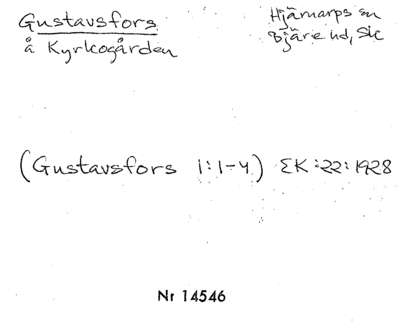 Gustavsfors
å Kyrkogården
Hjärnarps sn
Bjäre hd, Sk
(Gustavsfors 1:1-4) EK:22:1928
Nr 14546